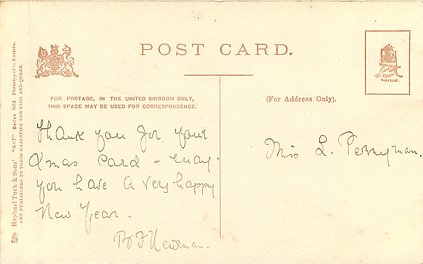 POST CARD.
FOR POSTAGE, IN THE UNITED KINGDOM ONLY,
THIS SPACE MAY BE USED FOR CORRESPONDENCE.
(For Address Only).
Thank you for your
Xmas card - may
you have a very happy
New Year -
Newman.
Miss L. Perryman.
Raphael Tuck & Sons' "ART" Series
ART PUBLISHERS TO THEIR MAJESTIES THE KING AND QUEEN.